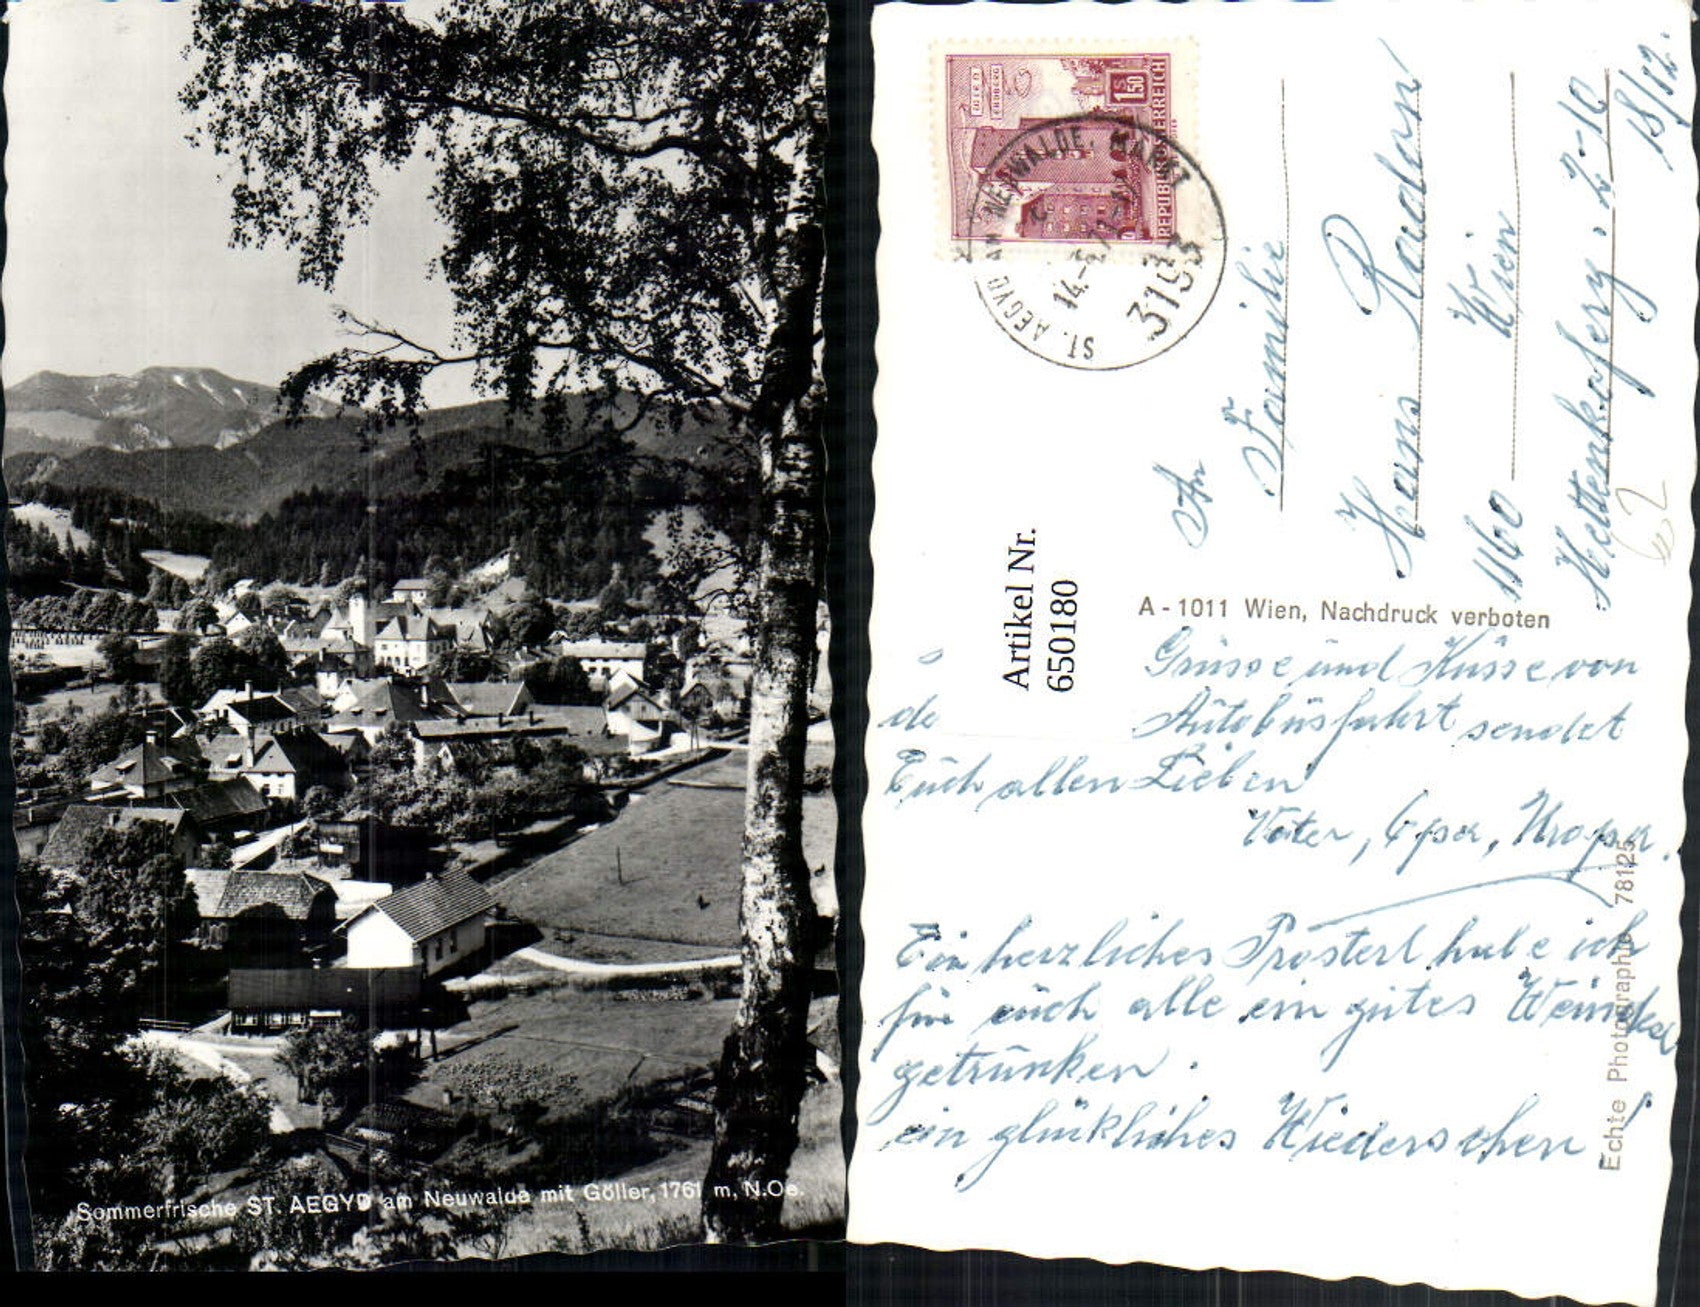 Sommerfrische ST. AEGYD am Neuwalde mit Göller, 1761 m, N.Oe.
WIEN
ERDBERG
S 1.50
REPUBLIK ÖSTERREICH
ST. AEGYD AM NEUWALDE, MARKT
14.-
3193
An
Familie
Hans
1160 Wien
2-10
18/12.
Artikel Nr.
650180
A - 1011 Wien, Nachdruck verboten
Grüsse und Küsse von
de Autobusfahrt sendet
Euch allen Lieben
Vater, Opa,
Ein herzliches Prosterl habe ich
für euch alle ein gutes
getrunken.
ein glückliches Wiedersehen!
Echte Photographie 78125